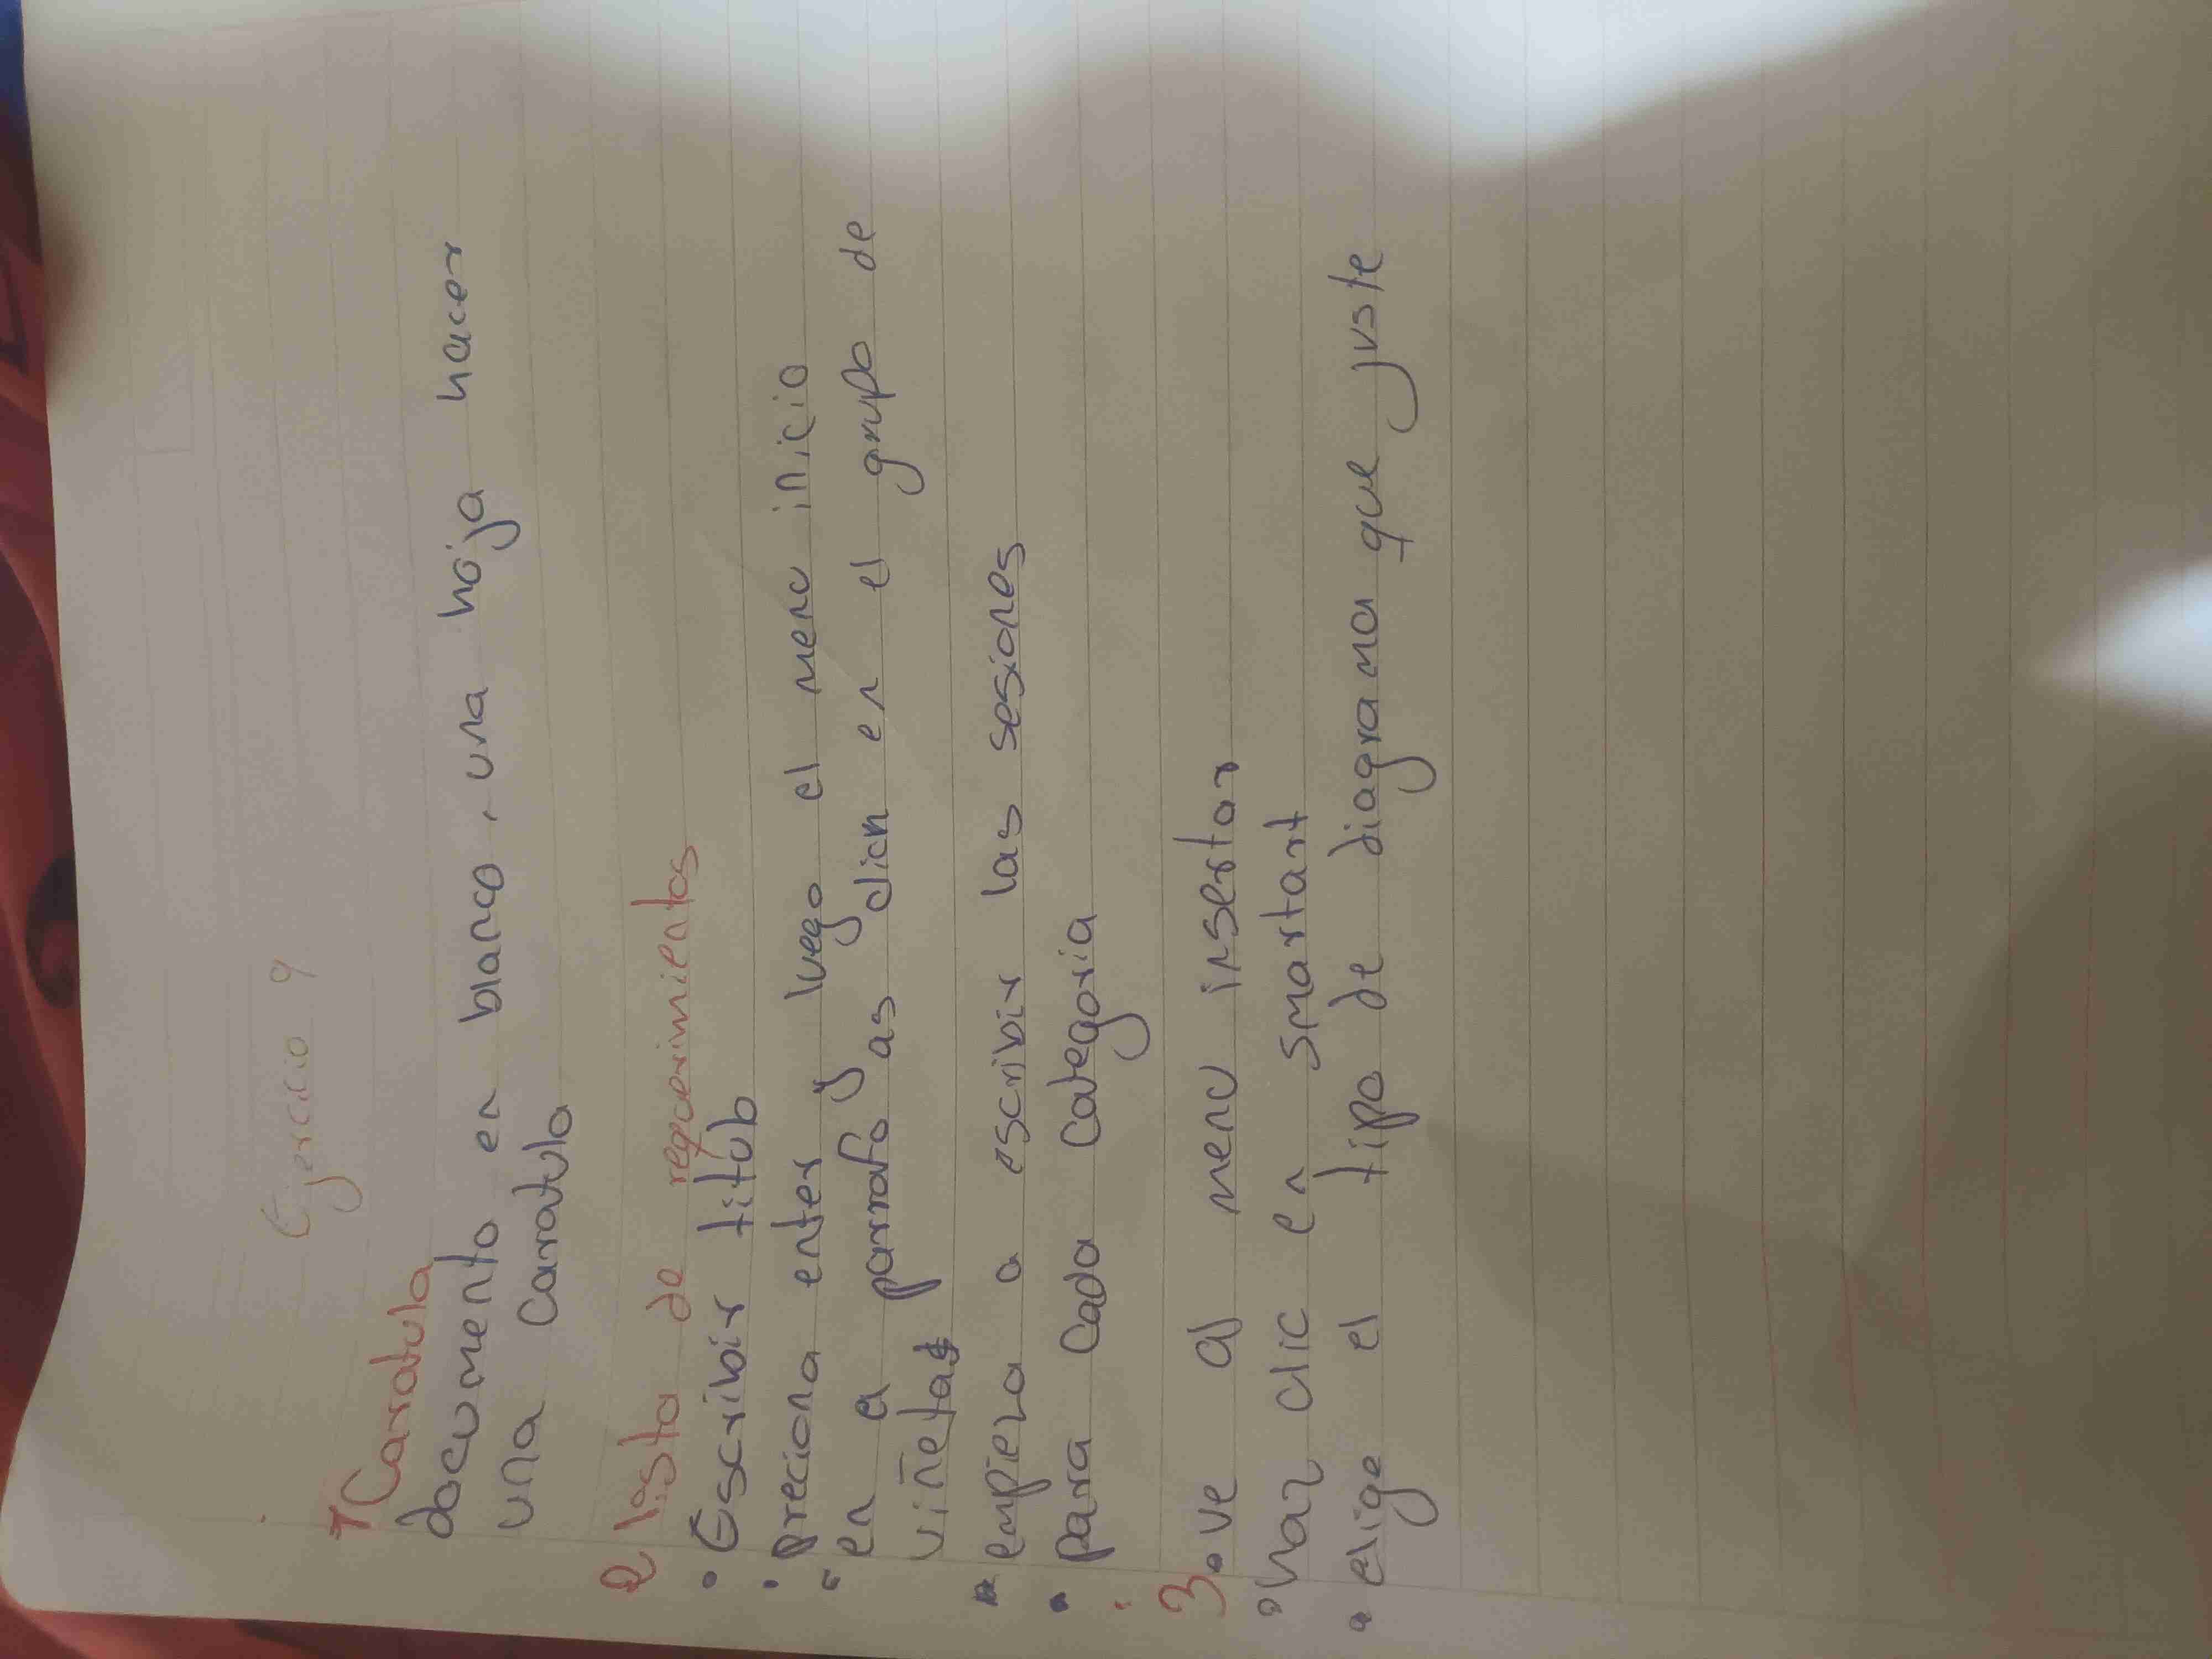 Ejercicio 9
1 Caratula
documento en blanco, una hoja hacer
una Caratula
2 lista de requerimientos
• Escribir titulo
• preciona enter y luego el menu inicio
• en el parrafo y as click en el grupo de
viñetas
• empieza a escribir las sesiones
• para cada categoria
3 • ve al menu insertar
• haz clic en smartart
• elige el tipo de diagrama que juste